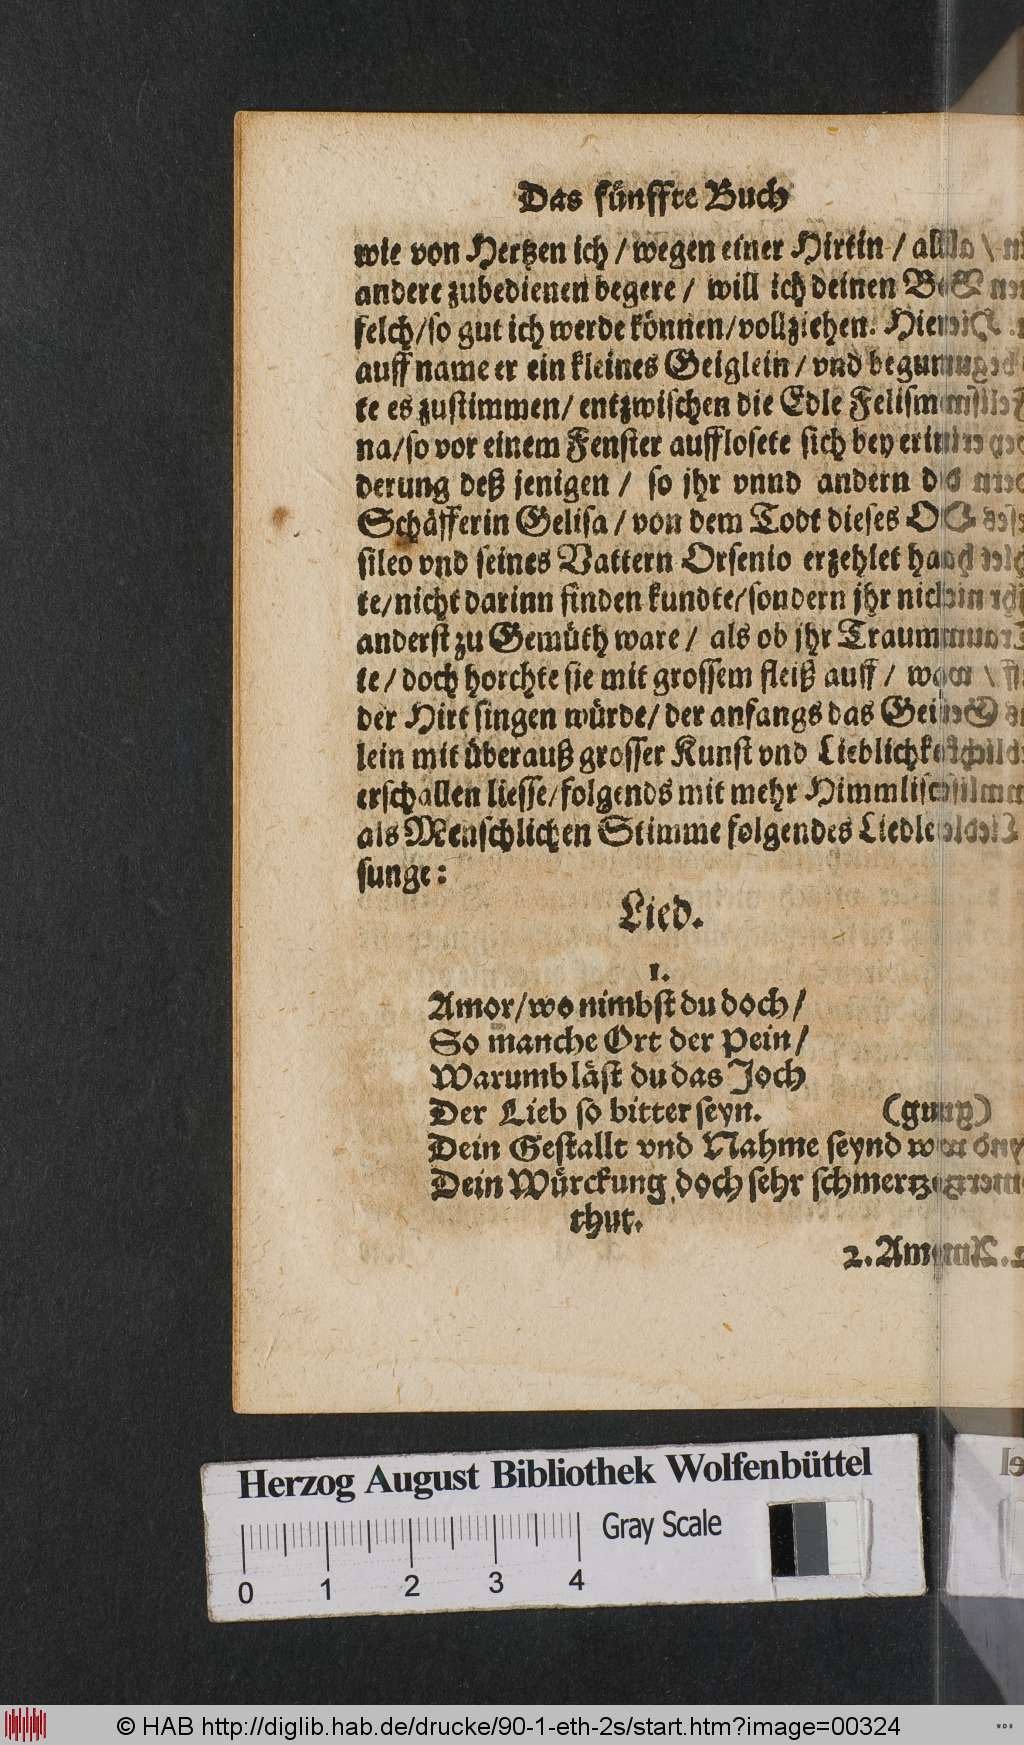 Das fünffte Buch
wie von Hertzen ich / wegen einer Hirtin / all
andere zubedienen begere / will ich deinen Be
felch/so gut ich werde können/vollziehen. Hier
auff name er ein kleines Geiglein / vnd begun
te es zustimmen/ entzwischen die Edle Felism
na/so vor einem Fenster aufflosete sich bey erin
derung deß jenigen / so jhr vnnd andern di
Schäfferin Gelisa / von dem Todt dieses O
sileo vnd seines Vattern Orsenio erzehlet ha
te/nicht darinn finden kundte/sondern jhr nich
anderst zu Gemüth ware / als ob jhr Traum
te / doch horchte sie mit grossem fleiß auff / wa
der Hirt singen würde/ der anfangs das Gei
lein mit überauß grosser Kunst vnd Lieblichke
erschallen liesse/folgends mit mehr Himmlisc
als Menschlichen Stimme folgendes Liedle
sunge:
Lied.
1.
Amor/wo nimbst du doch/
So manche Ort der Pein/
Warumb läst du das Joch
Der Lieb so bitter seyn. (gung)
Dein Gestallt vnd Nahme seynd
Dein Würckung doch sehr schmertz
thut.
2. Am
Herzog August Bibliothek Wolfenbüttel
Gray Scale
0 1 2 3 4
© HAB http://diglib.hab.de/drucke/90-1-eth-2s/start.htm?image=00324